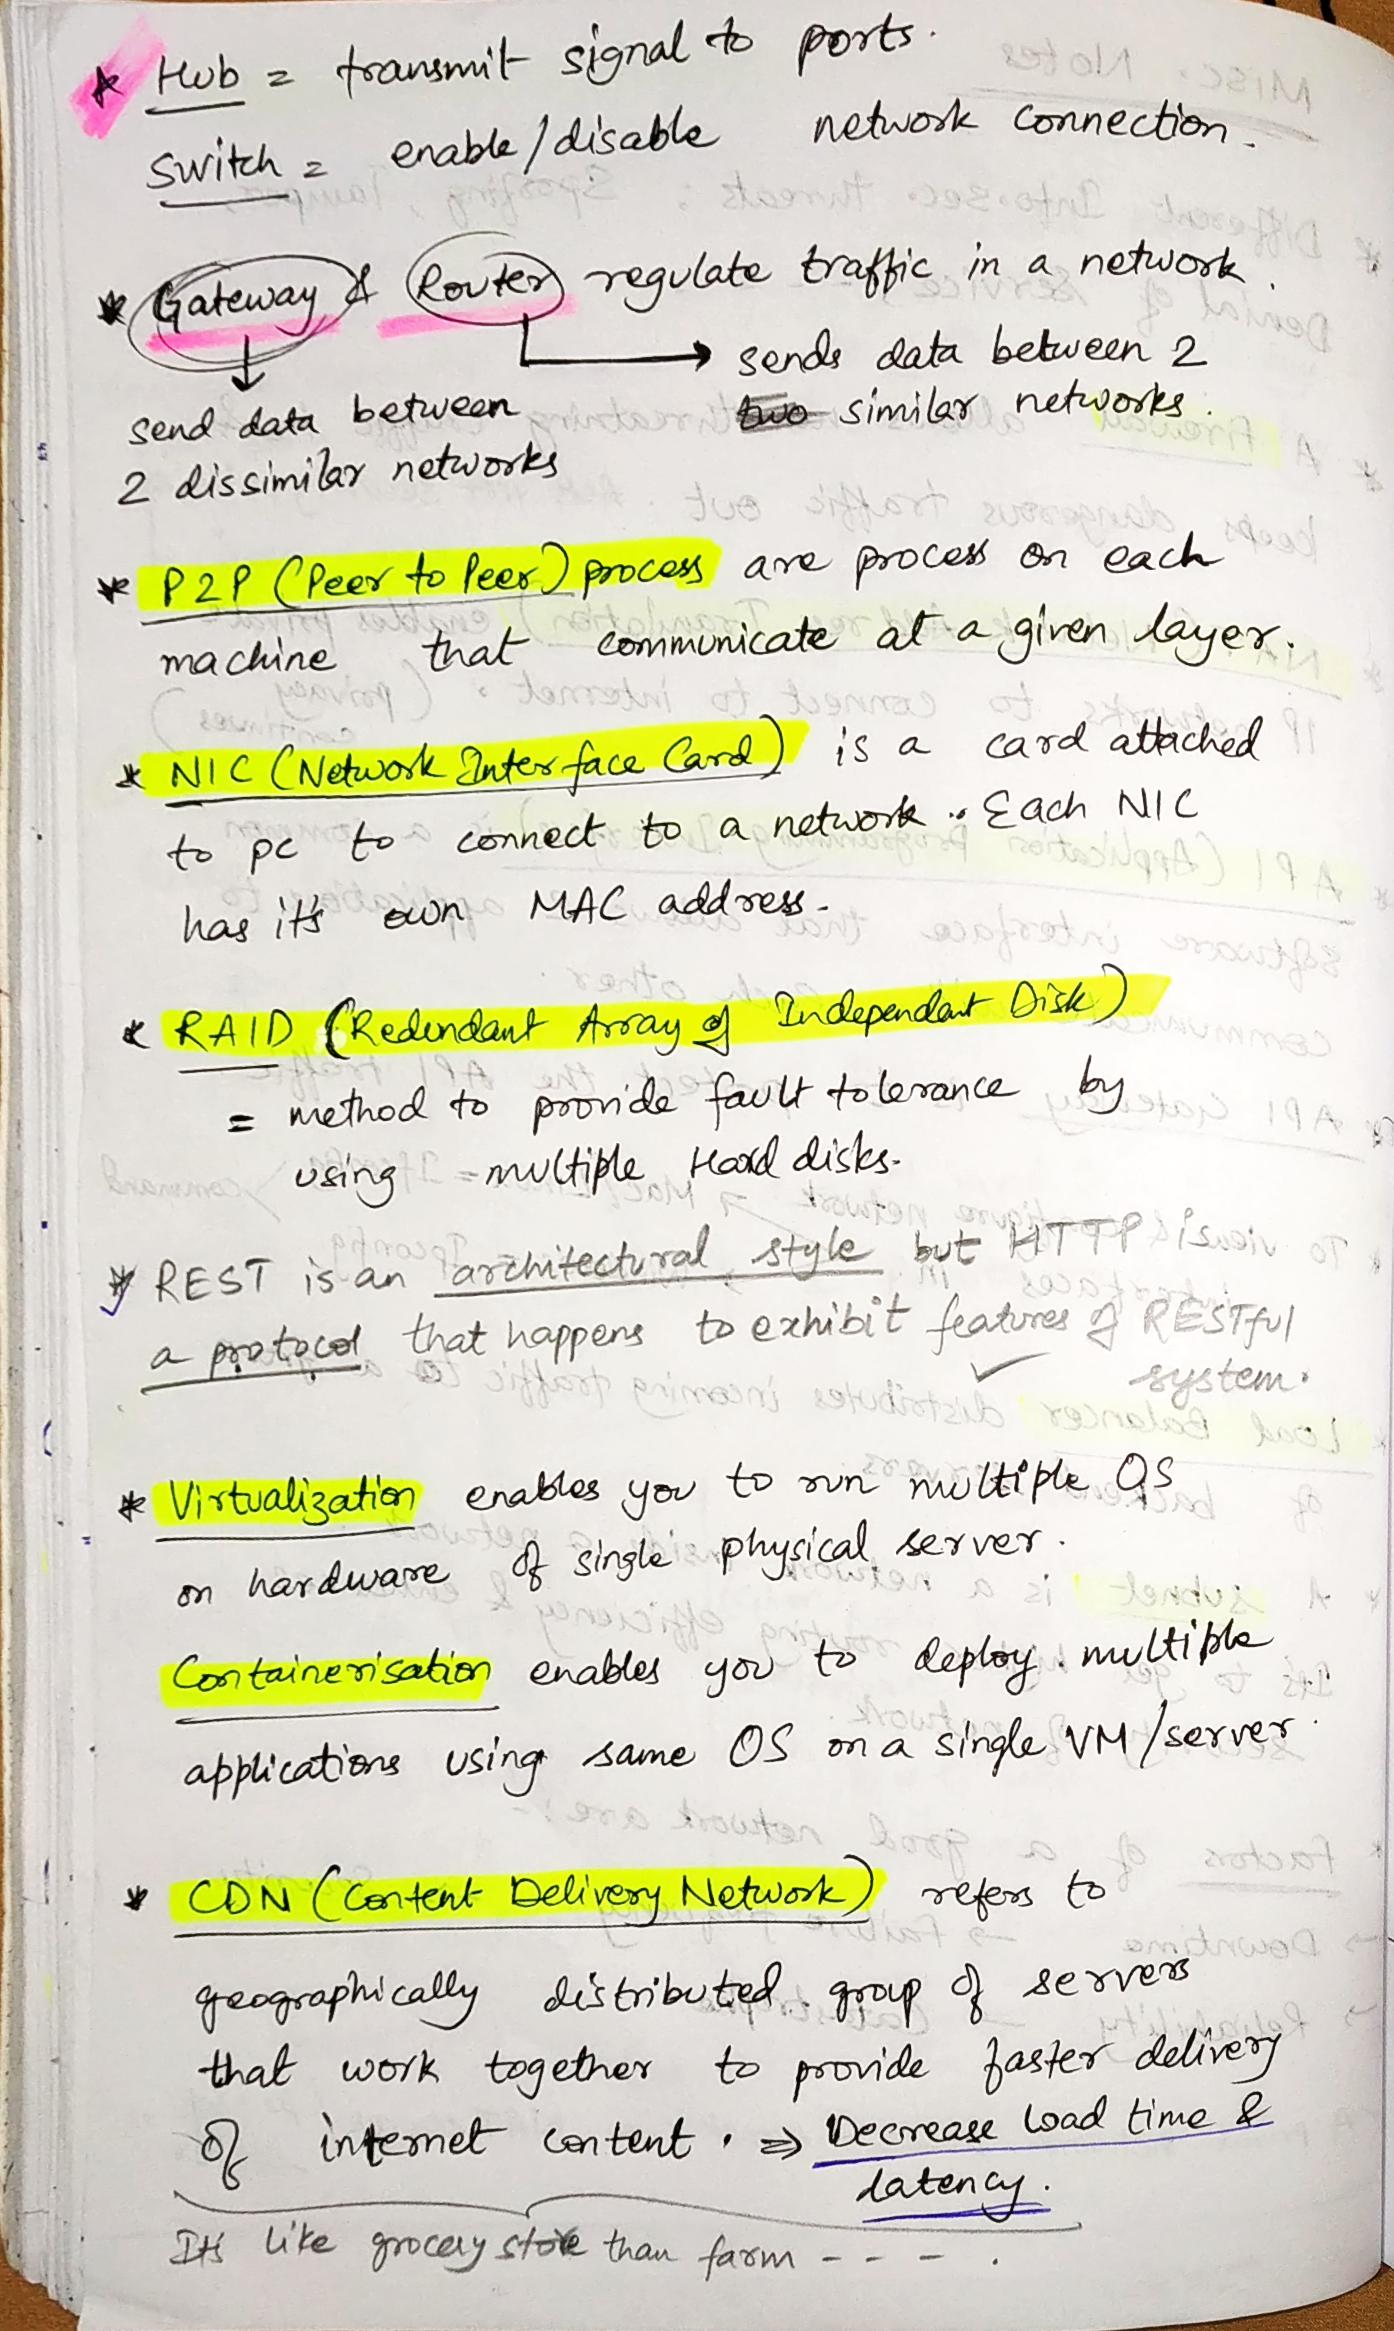 * Hub = transmit signal to ports.
Switch = enable/disable network connection.
* Gateway & Router regulate traffic in a network.
sends data between 2
two similar networks.
send data between
2 dissimilar networks
* P2P (Peer to Peer) process are process on each
machine that communicate at a given layer.
* NIC (Network Interface Card) is a card attached
to pc to connect to a network. Each NIC
has it's own MAC address.
* RAID (Redundant Array of Independent Disk)
= method to provide fault tolerance by
using multiple Hard disks.
* REST is an architectural style but HTTP is
a protocol that happens to exhibit features of RESTful
system.
* Virtualization enables you to run multiple OS
on hardware of single physical server.
Containerisation enables you to deploy multiple
applications using same OS on a single VM/server.
* CDN (Content Delivery Network) refers to
geographically distributed group of servers
that work together to provide faster delivery
of internet content. ⇒ Decrease load time &
latency.
It's like grocery store than farm - - - .